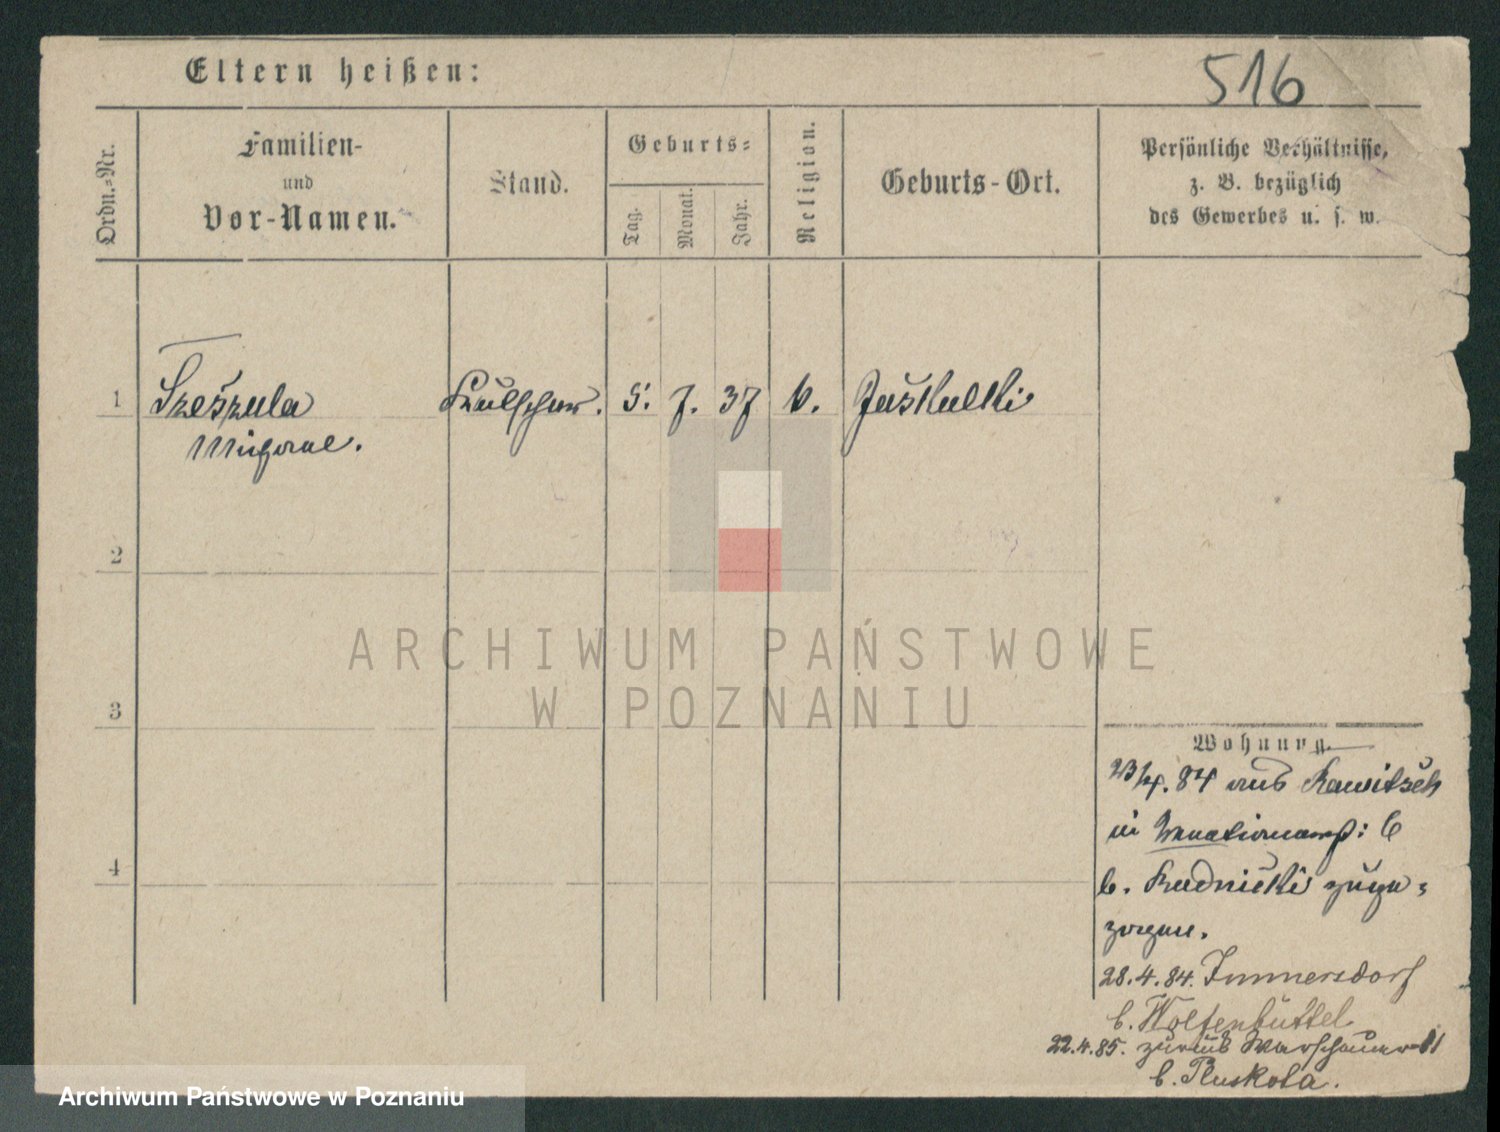 Eltern heißen:
516
Ordn.-Nr.
Familien-
und
Vor-Namen.
Stand.
Geburts-
Tag.
Monat.
Jahr.
Religion.
Geburts-Ort.
Persönliche Verhältnisse,
z. B. bezüglich
des Gewerbes u. s. w.
1
Szeszula
5. 7. 37
k.
2
ARCHIWUM PAŃSTWOWE
W POZNANIU
3
Wohnung.
23/4. 84 aus Rawitsch
in
b. Rudnicki zuge-
zogen.
4
28.4.84. Immersdorf
b. Wolfenbüttel
22.4.85. zurück Warschauer 11
b. Pluskota.
Archiwum Państwowe w Poznaniu